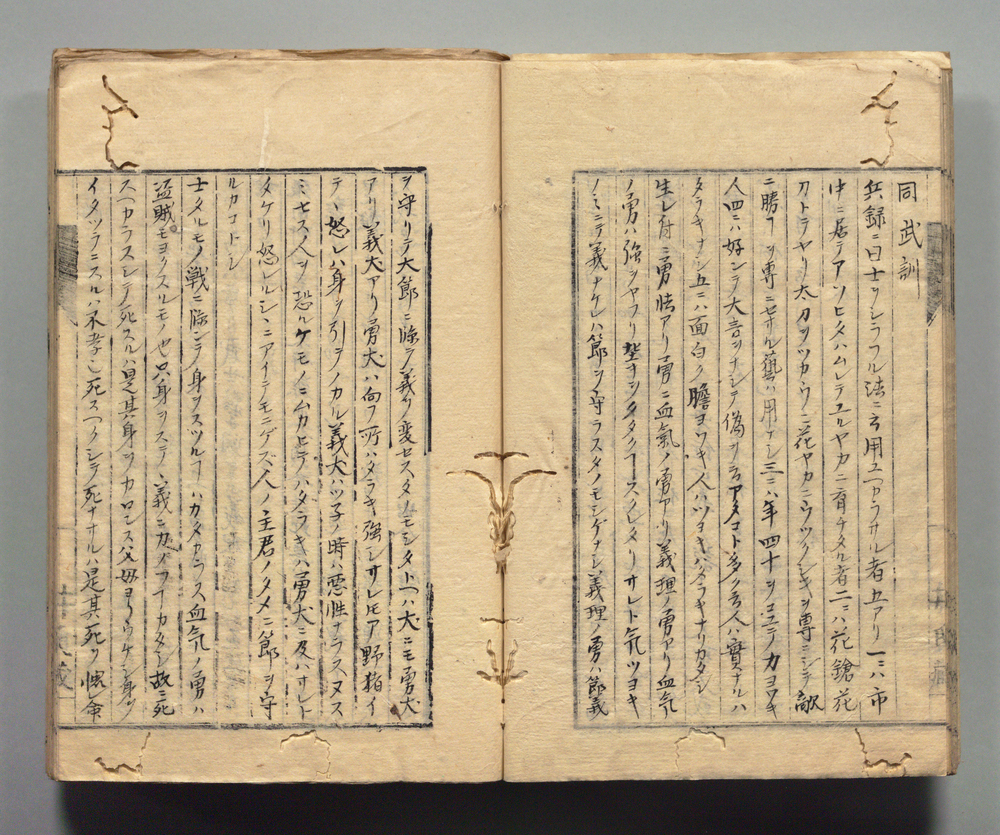 同武訓
兵録ニ曰士ヲシラフル法ニ云用ユヘカラサル者五アリ一ニハ市
中ニ居テアソヒタハムレテユルヤカニ育チタル者二ニハ花鎗花
刀トテヤリ太刀ヲツカウニ花ヤカニウツクシキヲ専ニシテ敵
ニ勝フヲ専ニセサル藝ハ用ナシ三ニハ年四十ヲコエテカヨワキ
人四ニハ好ンテ大言ヲナシテ偽ヲ云アタコト多ク云人ハ實ナルハ
タラキナシ五ニハ面白ク膽ヨワキ人ハツヨキハタラキナリカタシ
生レ付ニ勇怯アリ勇ニ血氣ノ勇アリ義理ノ勇アリ血气
ノ勇ハ強ヲヤフリ堅キヲクタクヿスクレタリサレト气ツヨキ
ノミニテ義ナケレハ節ヲ守ラスタノモシゲナシ義理ノ勇ハ節義
ヲ守リテ大節ニ臨テ義ヲ変セスタノモシタトヘハ犬ニモ勇犬
アリ義犬アリ勇犬ハ向フ所ハタラキ強シサレトモア野猪イ
テ怒レハ身ヲ引テノカル義犬ハツ子ノ時ハ悪性ナラスヌス
ミセス人ヲ恐ルケモノニムカヒテハタラキハ勇犬ニ及ハサレト
タケリ怒レルシヽニアイテモニゲズ人ノ主君ノタメニ節ヲ守
ルカコトシ
士タルモノ戦ニ臨ンテ身ヲスツルヿハカタカラス血气ノ勇ハ
盗賊モヨクスルモノ也只身ヲステヽ義ニカノフヿカタシ故ニ死
スヘカラスシテ死スルハ是其身ヲカロンス父母ヨリウケシ身ヲ
イタツラニスルハ不孝也死スヘクシテ死ナサルハ是其死ヲ惧レ命